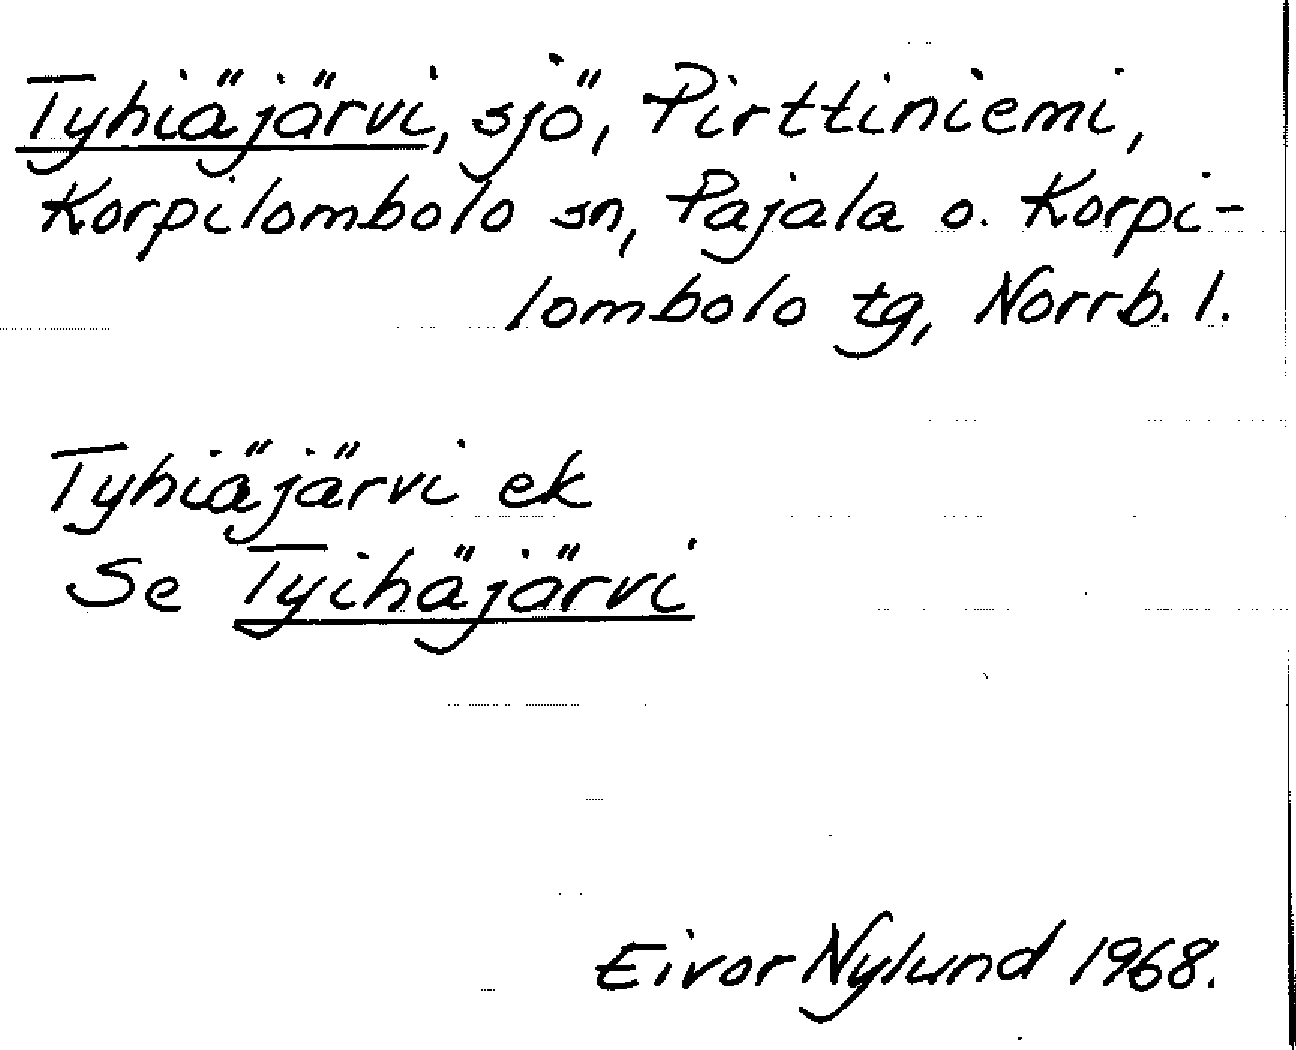 Tyhiäjärvi, sjö, Pirttiniemi,
Korpilombolo sn, Pajala o. Korpi-
lombolo tg, Norrb. l.
Tyhiäjärvi ek
Se Tyihäjärvi
Eivor Nylund 1968.